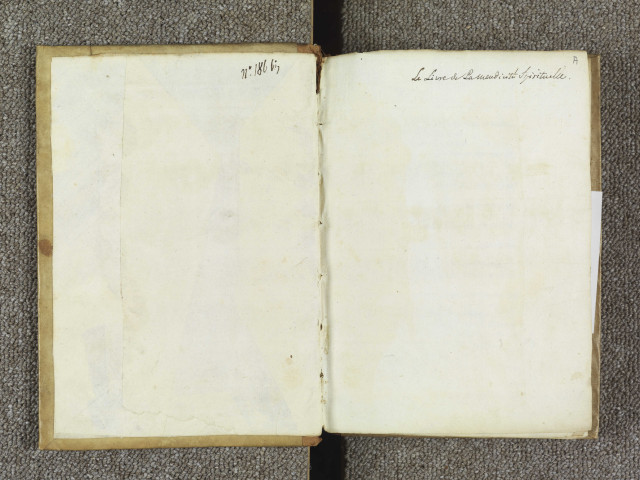 n.º 186 bis
Le Livre de La mendicité Spirituelle.